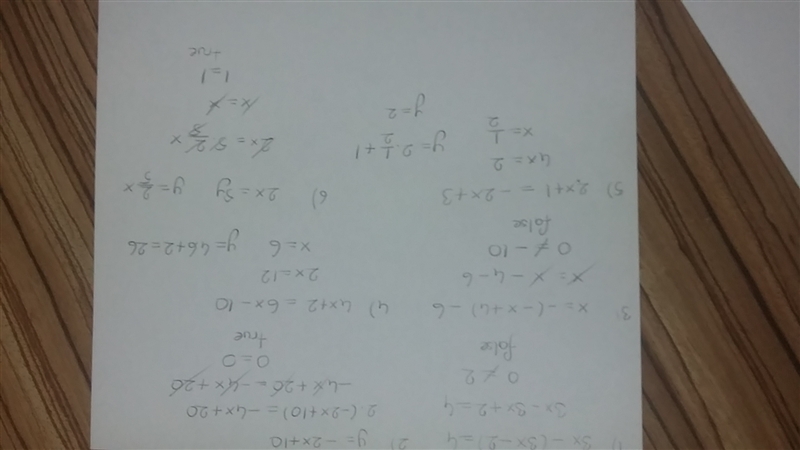 1) 3x - (3x - 2) = 4
3x - 3x + 2 = 4
0 ≠ 2
false
2) y = -2x + 10
2(-2x + 10) = -4x + 20
-4x + 20 = -4x + 20
0 = 0
true
3) x = -(-x + 4) - 6
x = x - 4 - 6
0 ≠ -10
false
4) 4x + 2 = 6x - 10
2x = 12
x = 6 y = 4·6 + 2 = 26
5) 2x + 1 = -2x + 3
4x = 2
x = 1/2 y = 2·1/2 + 1
y = 2
6) 2x = 5y y = 2/5 x
2x = 5 2/5 x
x = x
1 = 1
true